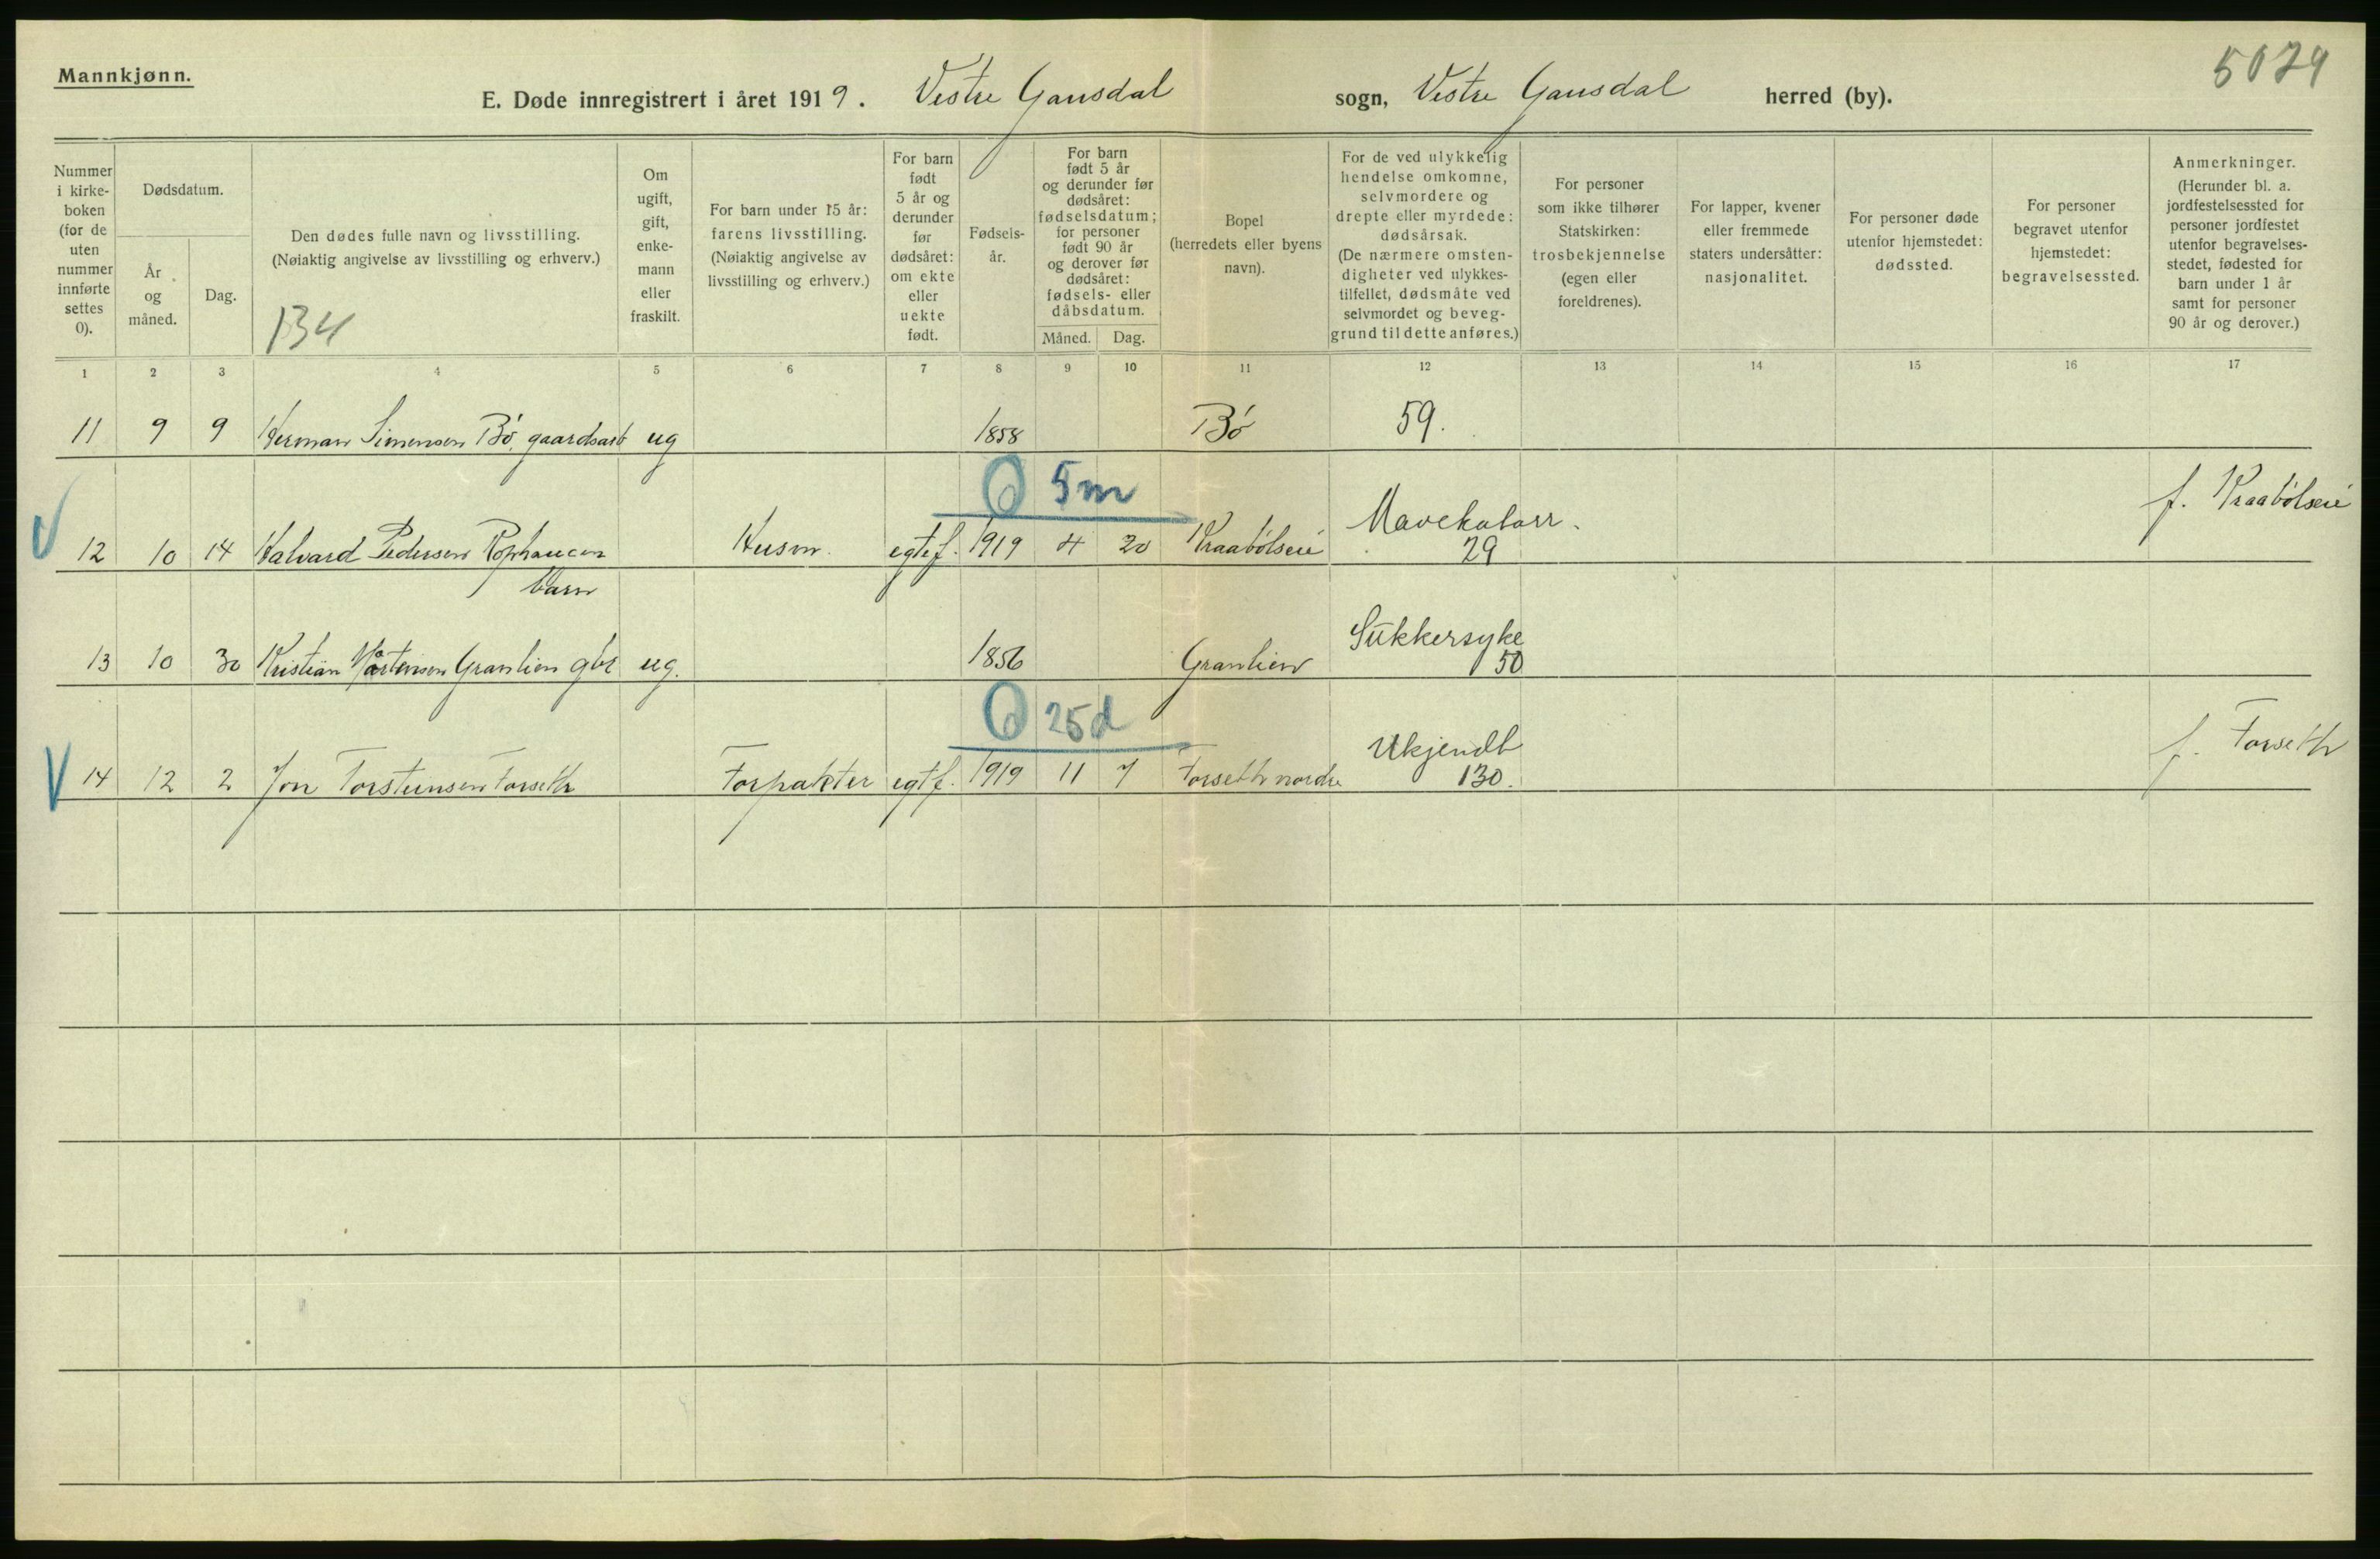 Mannkjønn.
5079
E. Døde innregistrert i året 1919. Vestre Gausdal sogn, Vestre Gausdal herred (by).
Nummer i kirke- boken (for de uten nummer innførte settes 0).
Dødsdatum.
År og måned.
Dag.
Den dødes fulle navn og livsstilling.
(Nøiaktig angivelse av livsstilling og erhverv.)
134
Om ugift, gift, enke- mann eller fraskilt.
For barn under 15 år: farens livsstilling. (Nøiaktig angivelse av livsstilling og erhverv.)
For barn født 5 år og derunder før dødsåret: om ekte eller uekte født.
Fødsels- år.
For barn født 5 år og derunder før dødsåret: fødselsdatum; for personer født 90 år og derover før dødsåret: fødsels- eller dåbsdatum.
Måned. Dag.
Bopel (herredets eller byens navn).
For de ved ulykkelig hendelse omkomne, selvmordere og drepte eller myrdede: dødsårsak. (De nærmere omsten- digheter ved ulykkes- tilfellet, dødsmåte ved selvmordet og beveg- grund til dette anføres.)
For personer som ikke tilhører Statskirken: trosbekjennelse (egen eller foreldrenes).
For lapper, kvener eller fremmede staters undersåtter: nasjonalitet.
For personer døde utenfor hjemstedet: dødssted.
For personer begravet utenfor hjemstedet: begravelsessted.
Anmerkninger. (Herunder bl. a. jordfestelsessted for personer jordfestet utenfor begravelses- stedet, fødested for barn under 1 år samt for personer 90 år og derover.)
1 2 3 4 5 6 7 8 9 10 11 12 13 14 15 16 17
11 9 9 Herman Simensen Bø, gaardsarb ug 1858 Bø 59.
5 m
12 10 14 Halvard Pedersen Husm. egtef. 1919 4 20 Kraabølseie Mavekatarr. 29 f. Kraabølseie
barn
13 10 30 Kristian Mortensen Granlien gbr ug. 1856 Granlien Sukkersyke 50
25 d
14 12 2 Jon Torsteinsen Forseth Forpakter egtf. 1919 11 7 Forseth nordre Ukjendt 130. f. Forseth